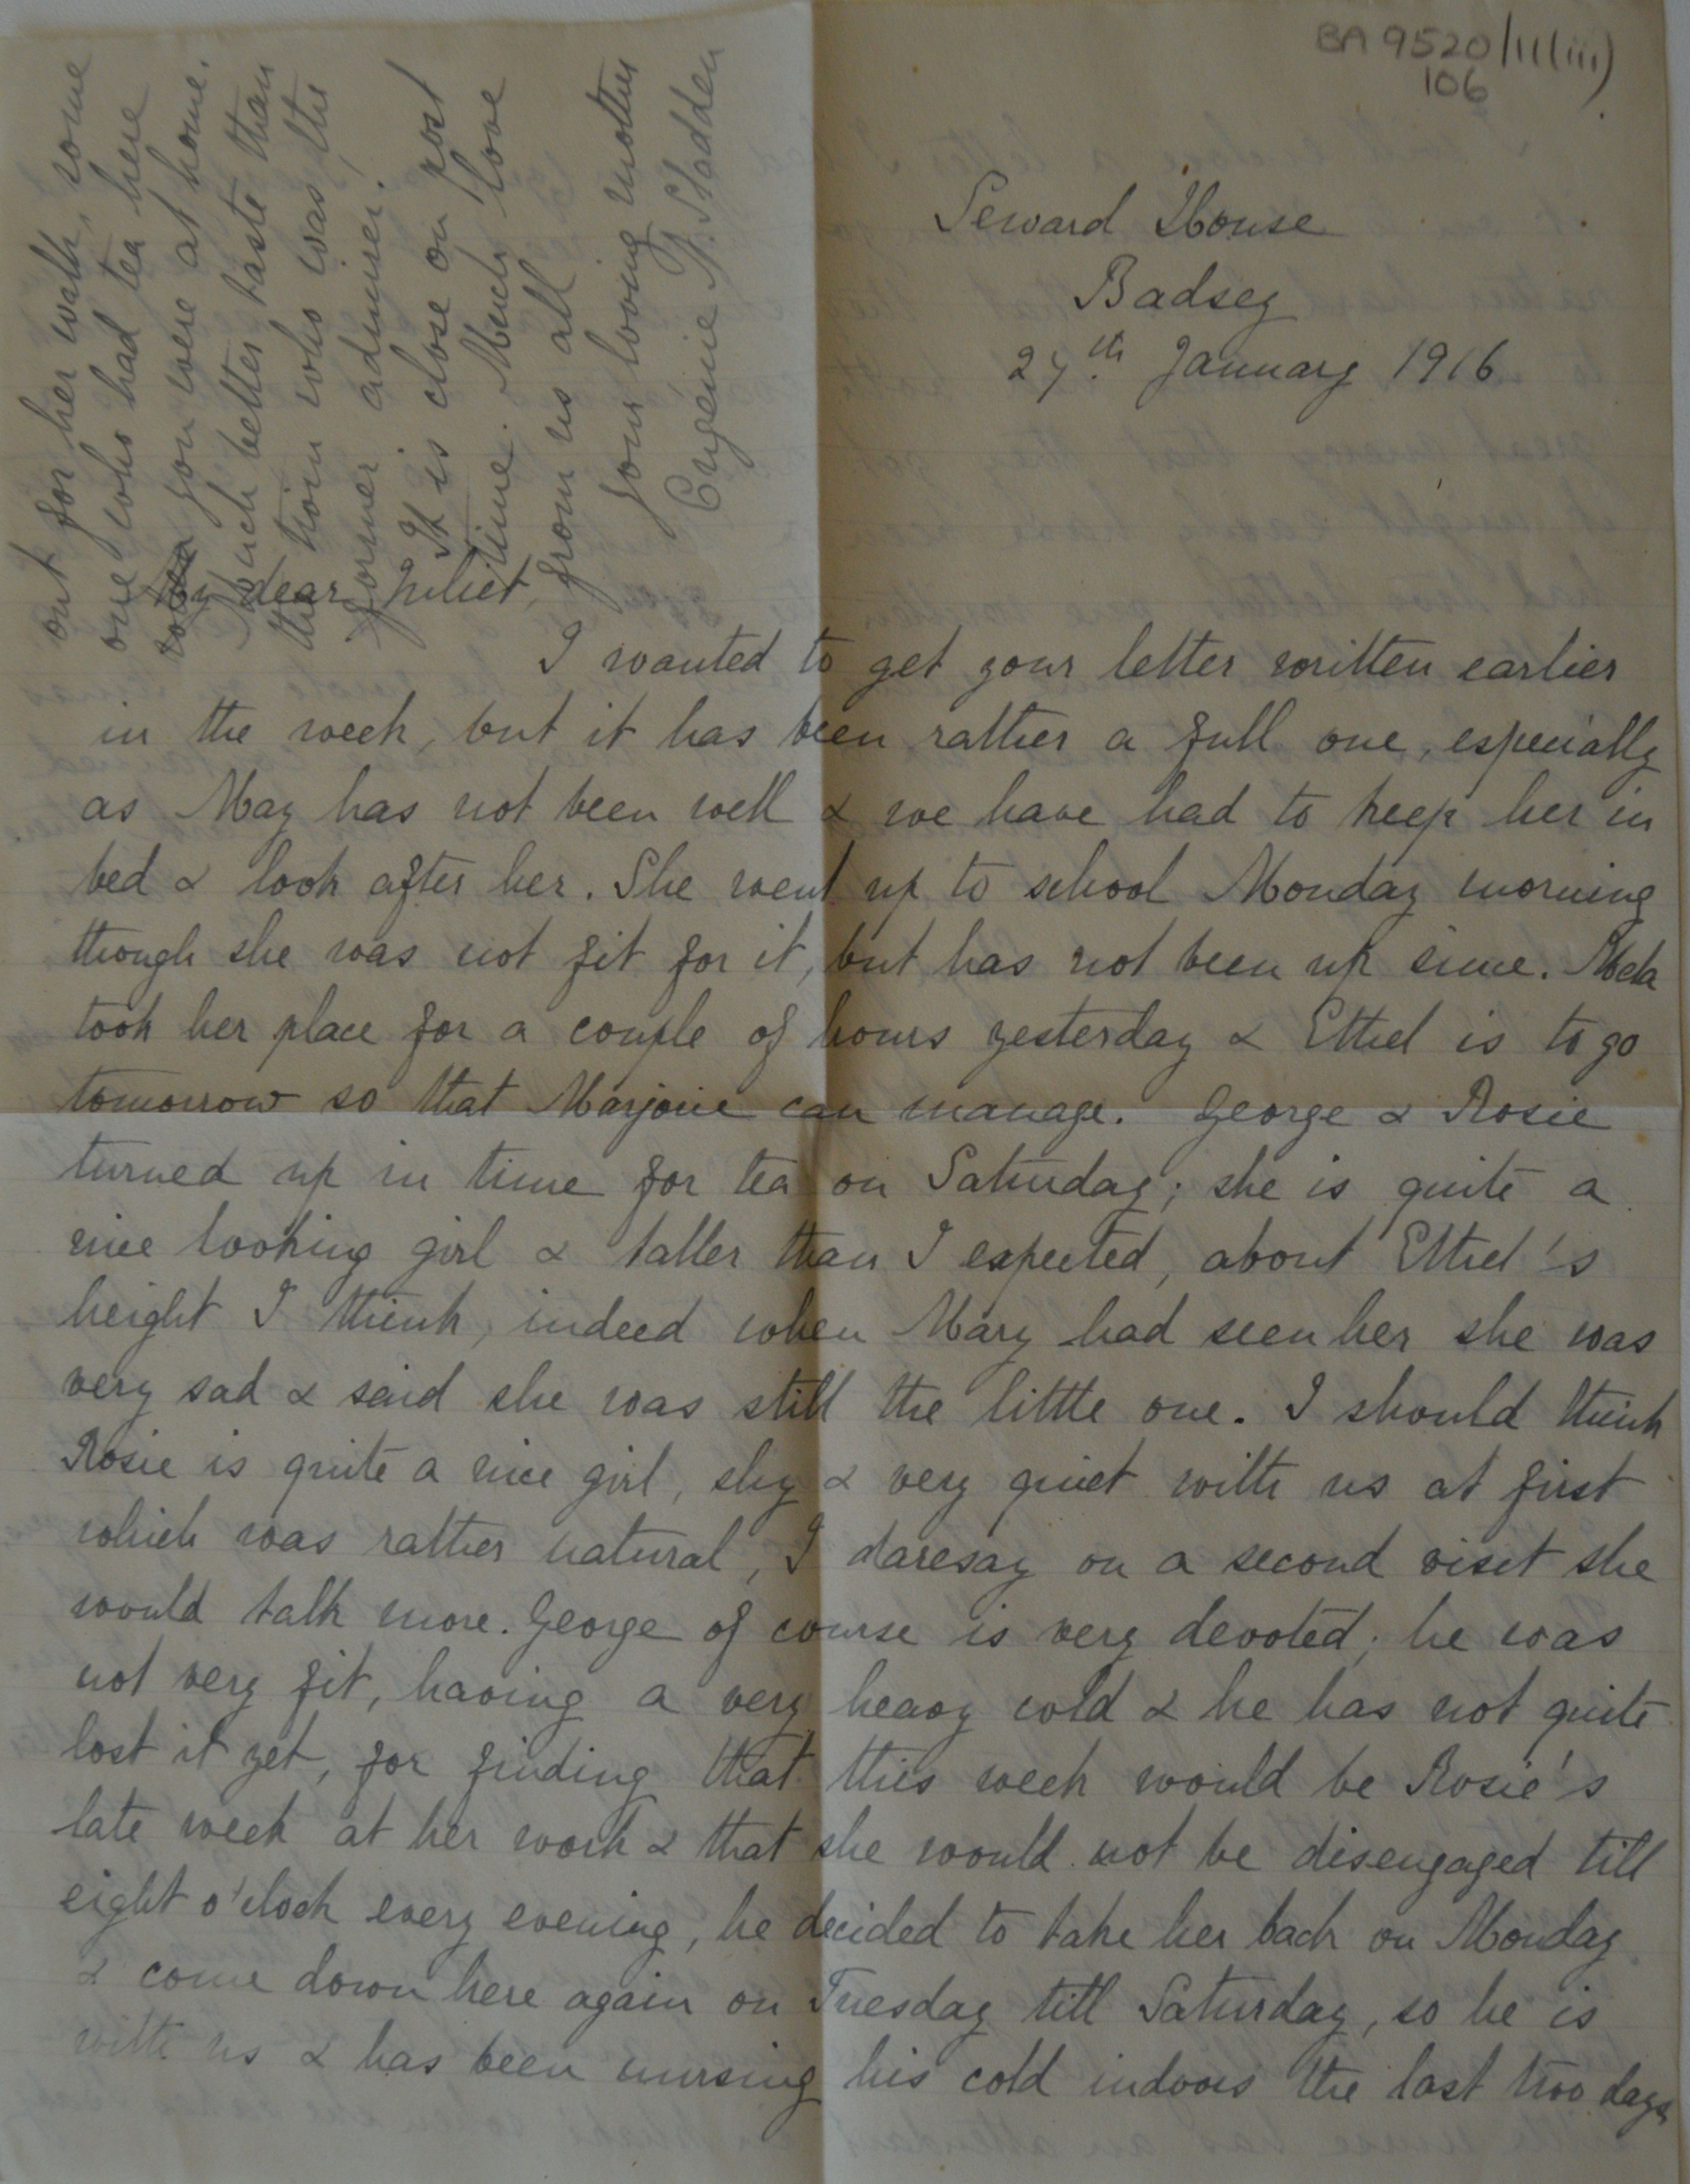 BA 9520/11(iii)
106
Seward House
Badsey
27th January 1916
My dear Juliet,
I wanted to get your letter written earlier
in the week, but it has been rather a full one, especially
as May has not been well & we have had to keep her in
bed & look after her. She went up to school Monday morning
though she was not fit for it, but has not been up since. Mela
took her place for a couple of hours yesterday & Ethel is to go
tomorrow so that Marjorie can manage. George & Rosie
turned up in time for tea on Saturday; she is quite a
nice looking girl & taller than I expected, about Ethel's
height I think, indeed when Mary had seen her she was
very sad & said she was still the little one. I should think
Rosie is quite a nice girl, shy & very quiet with us at first
which was rather natural, I daresay on a second visit she
would talk more. George of course is very devoted; he was
not very fit, having a very heavy cold & he has not quite
lost it yet, for finding that this week would be Rosie's
late week at her work & that she would not be disengaged till
eight o'clock every evening, he decided to take her back on Monday
& come down here again on Tuesday till Saturday, so he is
with us & has been nursing his cold indoors the last two days,
out for her walk, some
one who had tea here
when you were at home.
Much better taste than
the trom who was the
former admirer.
It is close on post
time. Much love
from us all
your loving mother
Eugénie N. Sladden